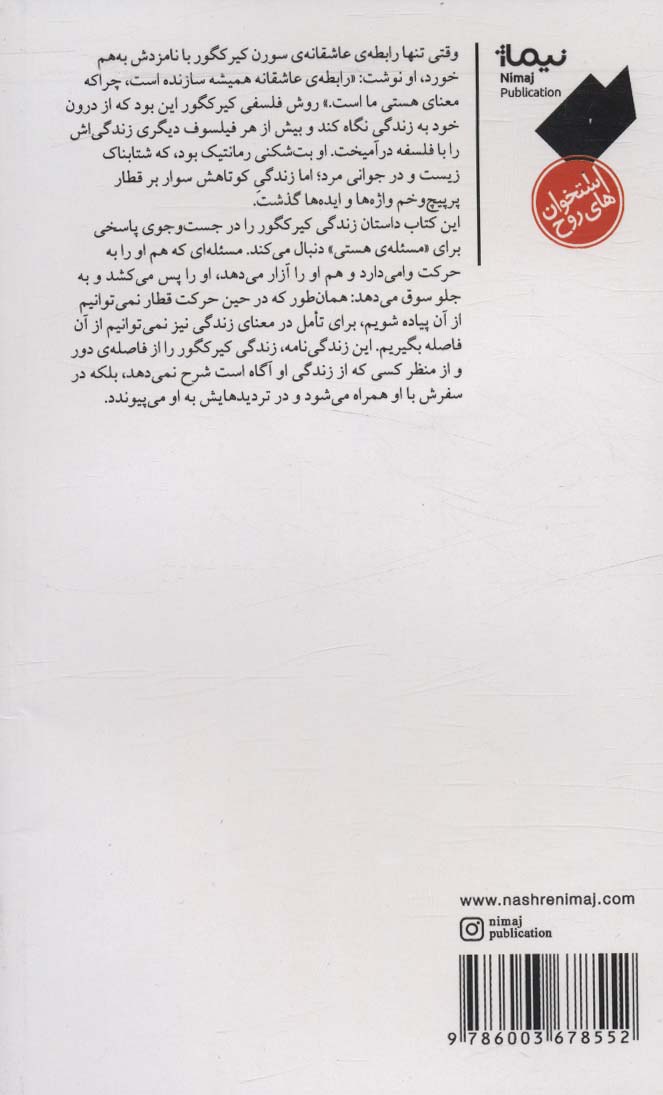 نیماژ
Nimaj
Publication
استخوان
های روح
وقتی تنها رابطه‌ی عاشقانه‌ی سورن کیرکگور با نامزدش به‌هم
خورد، او نوشت: «رابطه‌ی عاشقانه همیشه سازنده است، چراکه
معنای هستی ما است.» روش فلسفی کیرکگور این بود که از درون
خود به زندگی نگاه کند و بیش از هر فیلسوف دیگری زندگی‌اش
را با فلسفه درآمیخت. او بت‌شکنی رمانتیک بود، که شتابناک
زیست و در جوانی مرد؛ اما زندگیِ کوتاهش سوار بر قطار
پرپیچ‌وخم واژه‌ها و ایده‌ها گذشت.
این کتاب داستان زندگی کیرکگور را در جست‌وجوی پاسخی
برای «مسئله‌ی هستی» دنبال می‌کند. مسئله‌ای که هم او را به
حرکت وامی‌دارد و هم او را آزار می‌دهد، او را پس می‌کشد و به
جلو سوق می‌دهد: همان‌طور که در حین حرکت قطار نمی‌توانیم
از آن پیاده شویم، برای تأمل در معنای زندگی نیز نمی‌توانیم از آن
فاصله بگیریم. این زندگی‌نامه، زندگی کیرکگور را از فاصله‌ی دور
و از منظر کسی که از زندگی او آگاه است شرح نمی‌دهد، بلکه در
سفرش با او همراه می‌شود و در تردیدهایش به او می‌پیوندد.
www.nashrenimaj.com
nimaj
publication
9 786003 678552